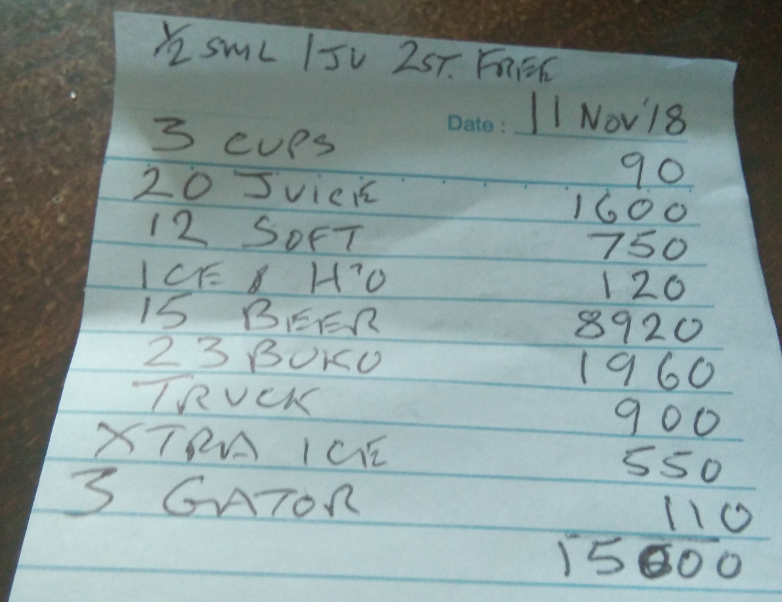 ½ SML 1JU 2ST. FREE
Date : 11 Nov'18
3 CUPS 90
20 JUICE 1600
12 SOFT 750
ICE & H²O 120
15 BEER 8920
23 BUKO 1960
TRUCK 900
XTRA ICE 550
3 GATOR 110
15000